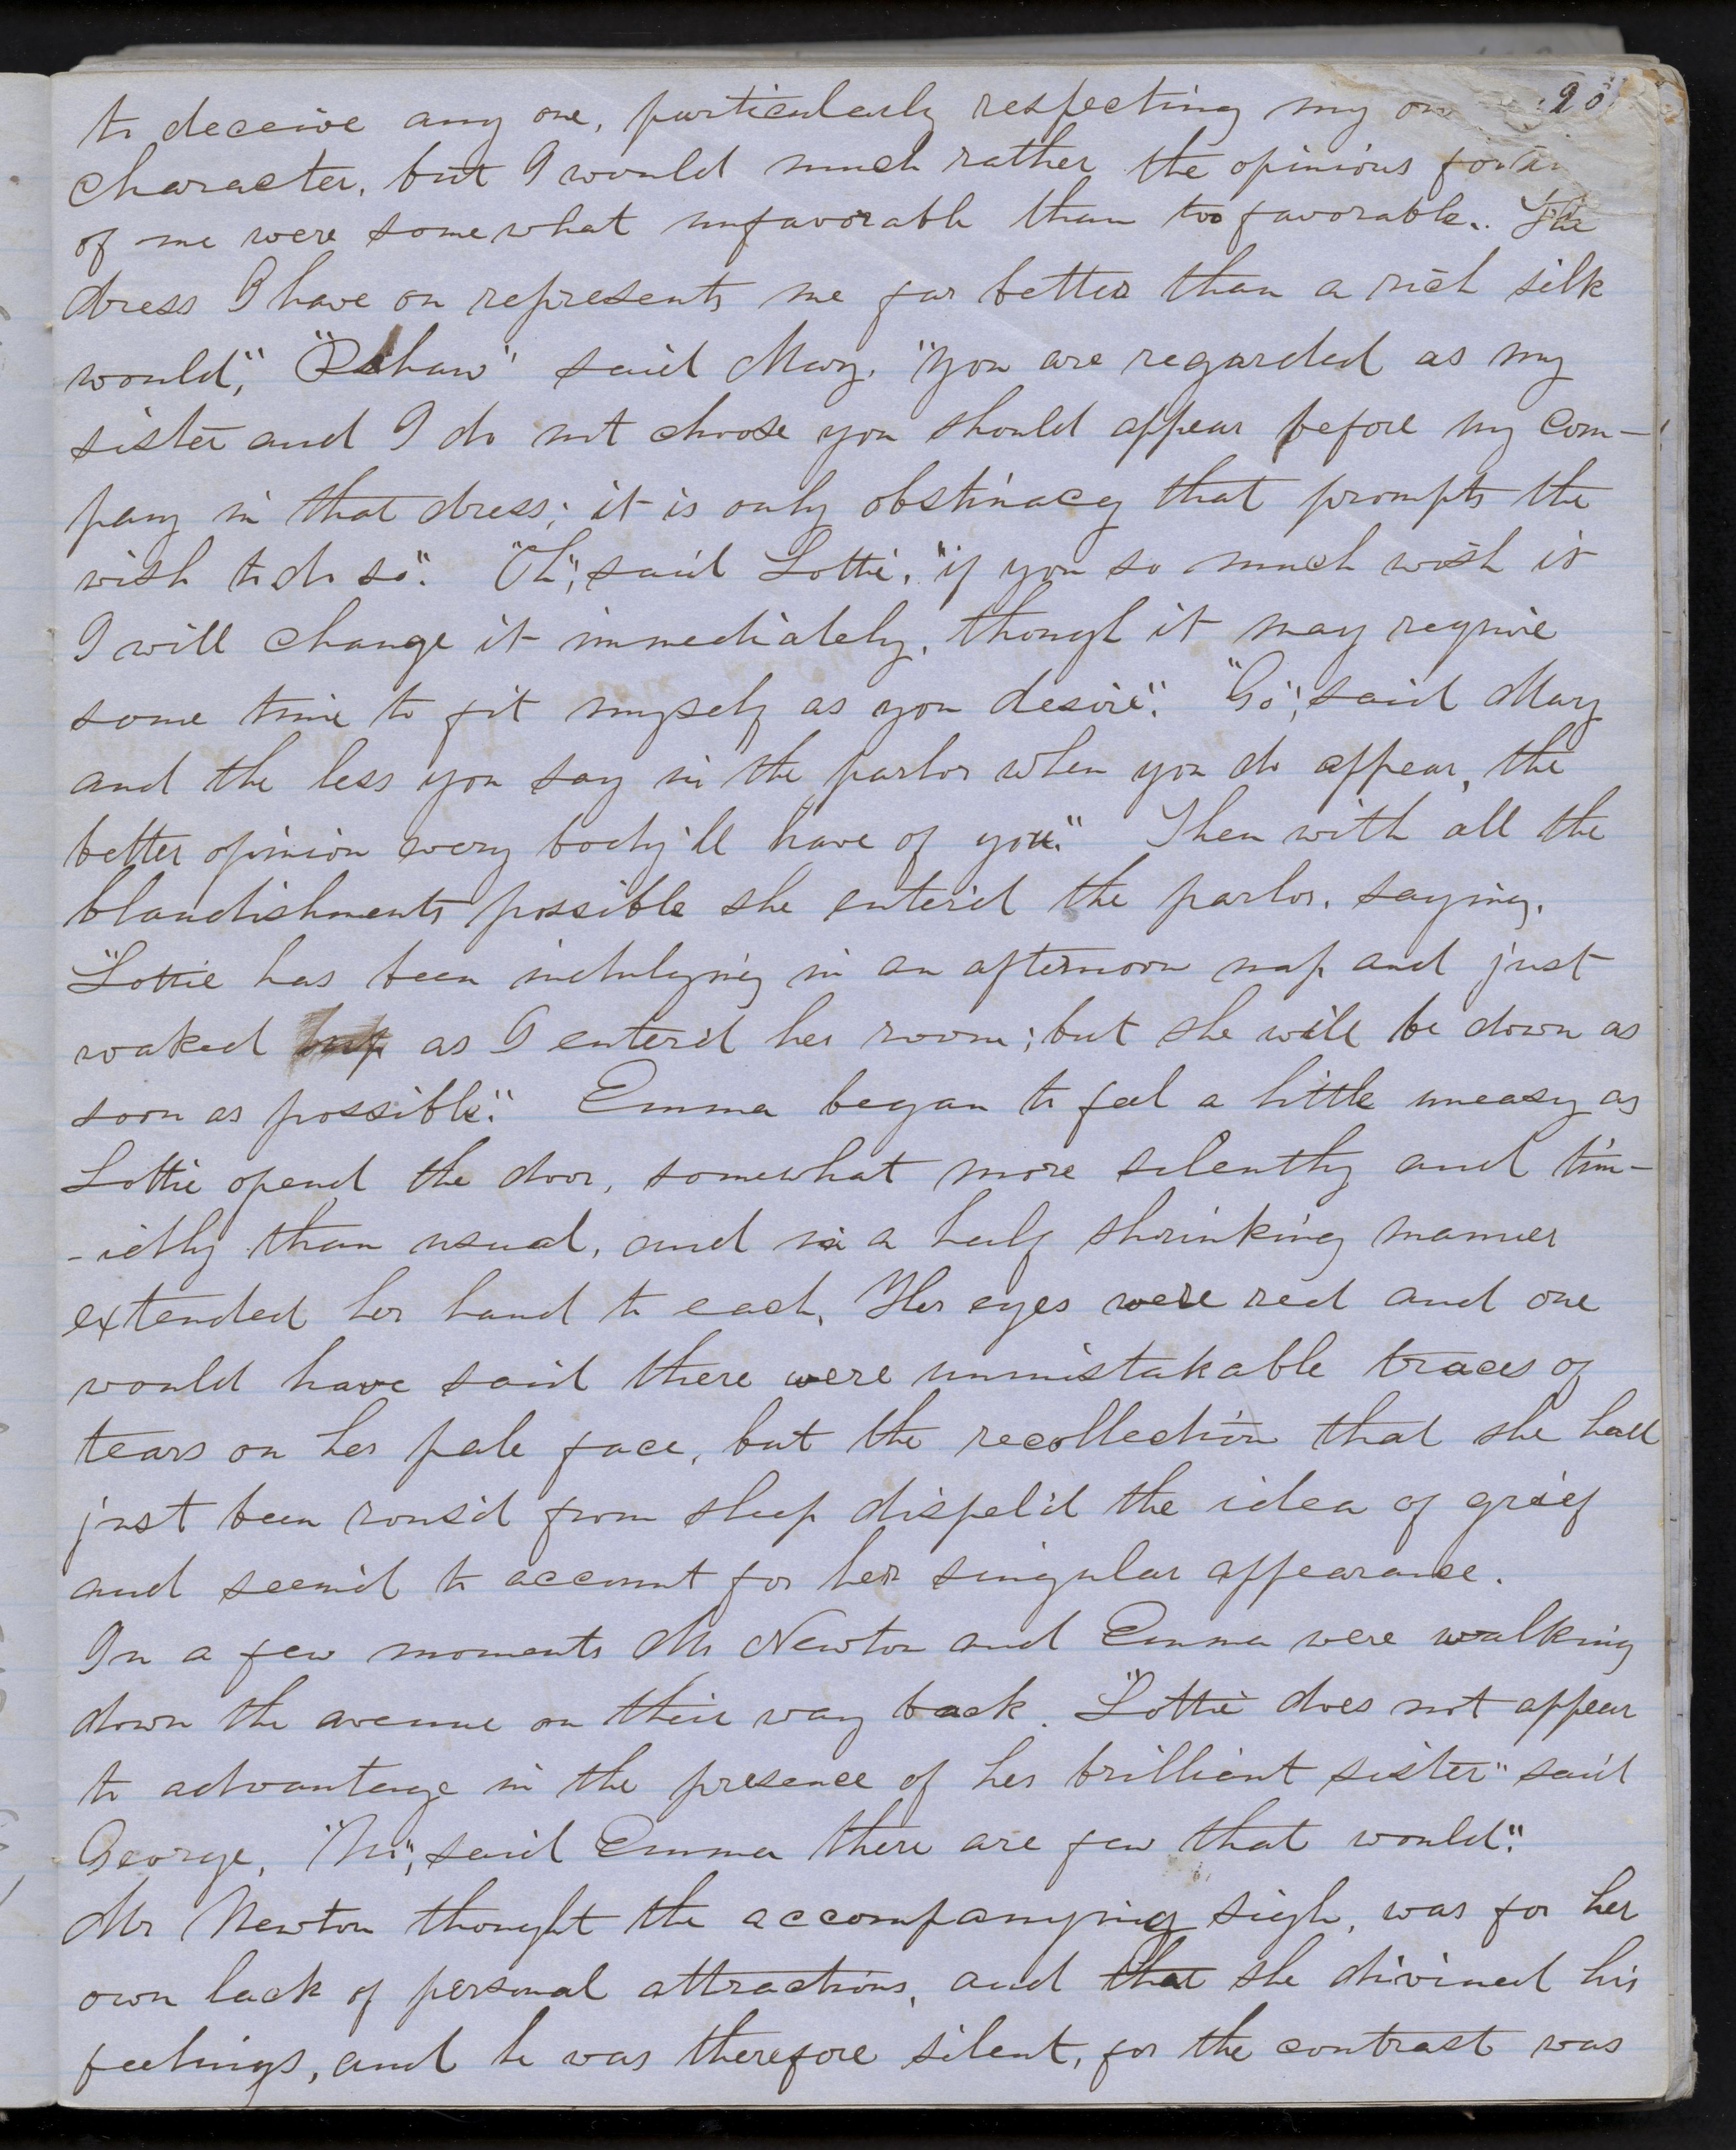 90
to deceive any one, particularly respecting my own
character, but I would much rather the opinions
of me were somewhat unfavorable than too favorable. The
dress I have on represents me far better than a rich silk
would," "Pshaw" said Mary, "you are regarded as my
sister and I do not choose you should appear before my com-
pany in that dress; it is only obstinacy that prompts the
wish to do so". "Oh", said Lottie, "if you so much wish it
I will change it immediately, though it may require
some time to fit myself as you desire". "Go", said Mary
and the less you say in the parlor when you do appear, the
better opinion every body'll have of you." Then with all the
blandishments possible she enter'd the parlor, saying,
"Lottie has been indulging in an afternoon nap and just
waked as I enter'd her room; but she will be down as
soon as possible." Emma began to feel a little uneasy as
Lottie opend the door, somewhat more silently and tim-
-idly than usual, and in a half shrinking manner
extended her hand to each, Her eyes were red and one
would have said there were unmistakable traces of
tears on her pale face, but the recollection that she had
just been rous'd from sleep dispel'd the idea of grief
and seem'd to account for her singular appearance.
In a few moments Mr Newton and Emma were walking
down the avenue on their way back. "Lottie does not appear
to advantage in the presence of her brilliant sister" said
George, "No", said Emma there are few that would".
Mr Newton thought the accompanying sigh, was for her
own lack of personal attractions, and that she divined his
feelings, and he was therefore silent, for the contrast was